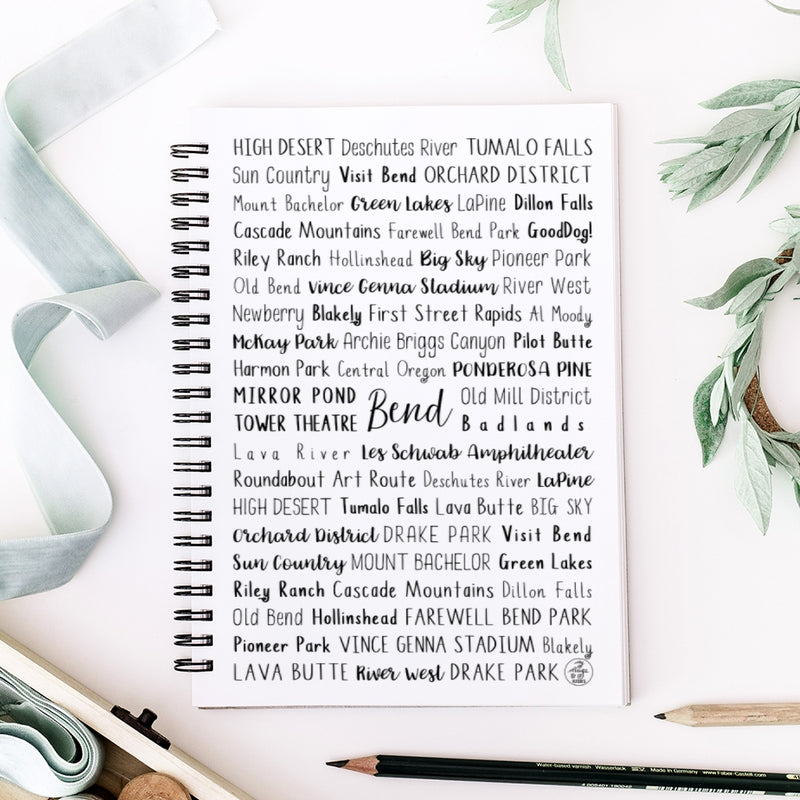 HIGH DESERT Deschutes River TUMALO FALLS
Sun Country Visit Bend ORCHARD DISTRICT
Mount Bachelor Green Lakes LaPine Dillon Falls
Cascade Mountains Farewell Bend Park GoodDog!
Riley Ranch Hollinshead Big Sky Pioneer Park
Old Bend Vince Genna Stadium River West
Newberry Blakely First Street Rapids Al Moody
McKay Park Archie Briggs Canyon Pilot Butte
Harmon Park Central Oregon PONDEROSA PINE
MIRROR POND Old Mill District
Bend
TOWER THEATRE Badlands
Lava River Les Schwab Amphitheater
Roundabout Art Route Deschutes River LaPine
HIGH DESERT Tumalo Falls Lava Butte BIG SKY
Orchard District DRAKE PARK Visit Bend
Sun Country MOUNT BACHELOR Green Lakes
Riley Ranch Cascade Mountains Dillon Falls
Old Bend Hollinshead FAREWELL BEND PARK
Pioneer Park VINCE GENNA STADIUM Blakely
LAVA BUTTE River West DRAKE PARK
Water-based varnish Wasserlack Made in Germany www.Faber-Castell.com